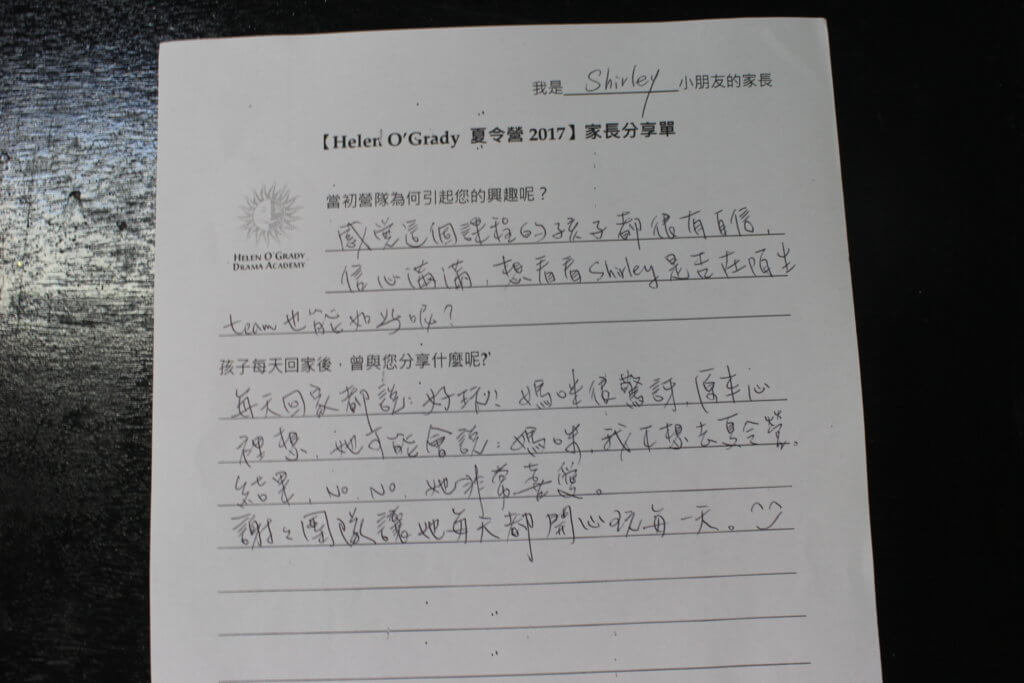 我是 Shirley 小朋友的家長
【Helen O'Grady 夏令營 2017】家長分享單
當初營隊為何引起您的興趣呢？
HELEN O'GRADY
DRAMA ACADEMY
感覺這個課程的孩子都很有自信，
信心滿滿，想看看Shirley是否在陌生
team也能如此呢？
孩子每天回家後，曾與您分享什麼呢?
每天回家都說：好玩！媽咪很驚訝，原本心
裡想，她可能會說：媽咪，我不想去夏令營。
結果，No，No，她非常喜愛。
謝々團隊讓她每天都開心玩每一天。